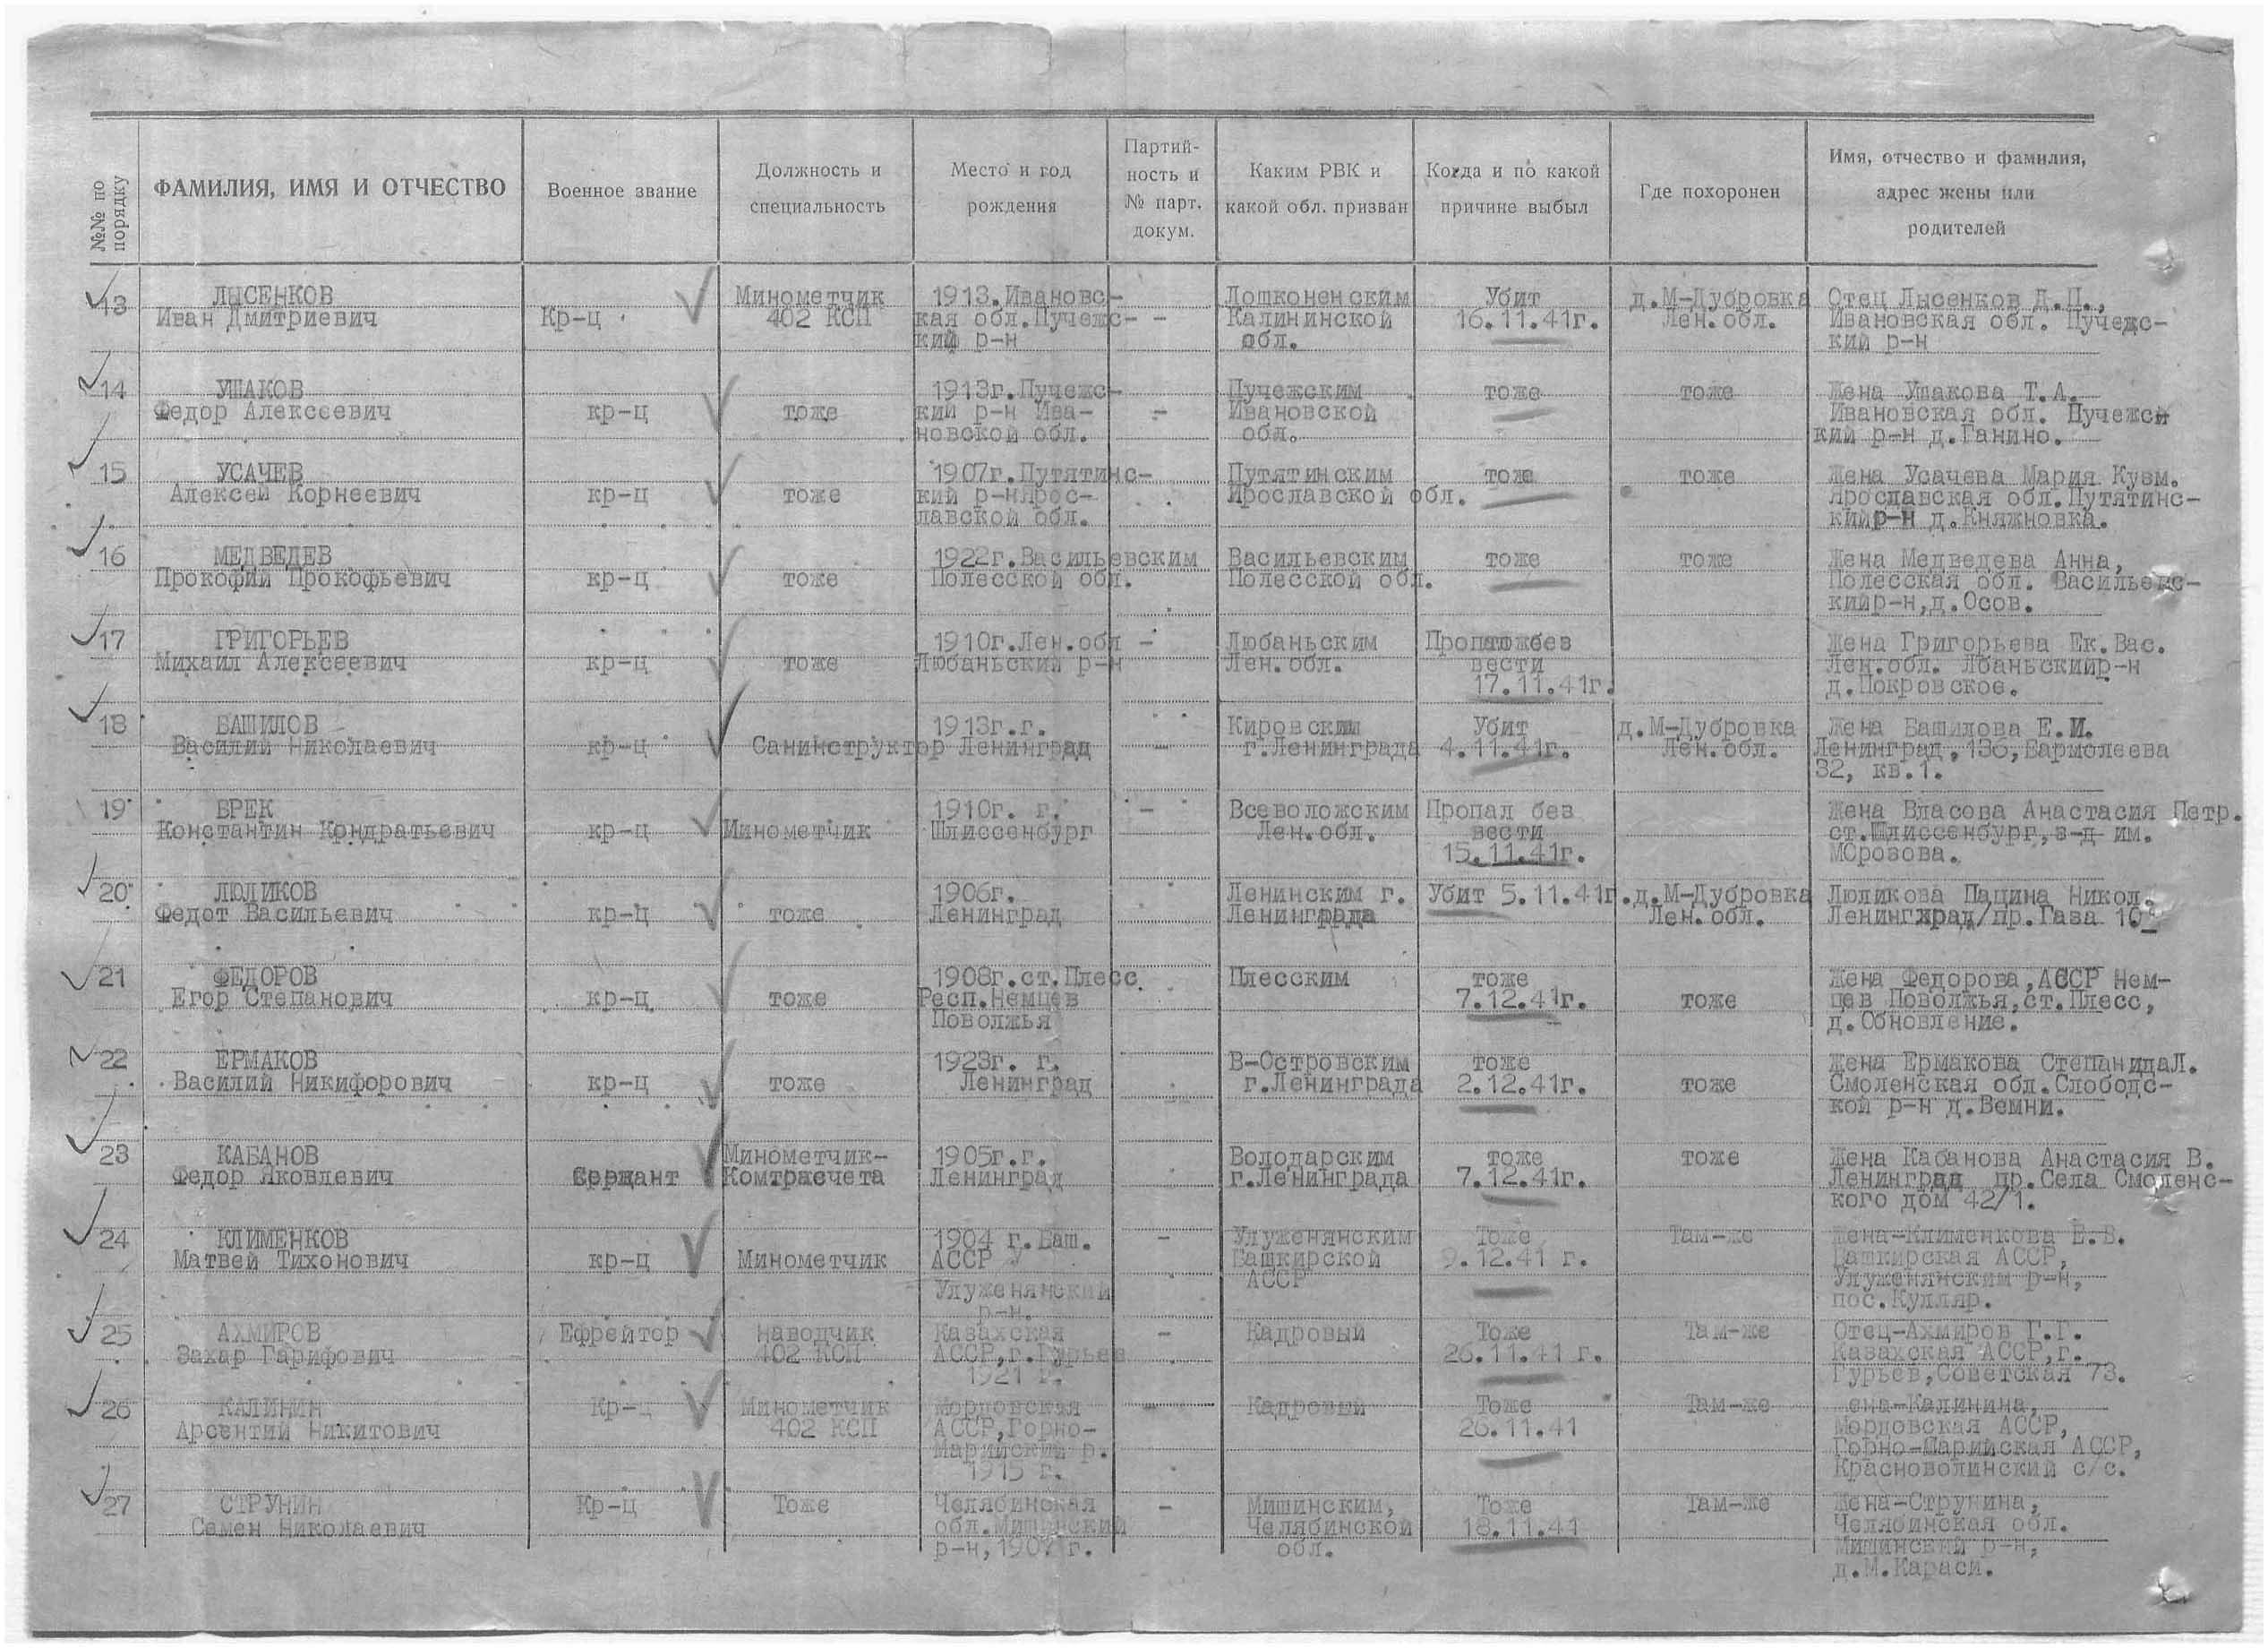 №№ по порядку
ФАМИЛИЯ, ИМЯ И ОТЧЕСТВО
Военное звание
Должность и специальность
Место и год рождения
Партий-ность и № парт. докум.
Каким РВК и какой обл. призван
Когда и по какой причине выбыл
Где похоронен
Имя, отчество и фамилия, адрес жены или родителей
13 ЛЫСЕНКОВ Минометчик 1913.Ивановс- Лошконенским Убит д.М-Дубровка Отец Лысенков Д.П.,
Иван Дмитриевич Кр-ц 402 КСП кая обл.Пучежс- - Калининской 16.11.41г. Лен.обл. Ивановская обл. Пучежс-
кий р-н обл. кий р-н
14 УШАКОВ 1913г.Пучежс- Пучежским тоже тоже Жена Ушакова Т.А.
Федор Алексеевич кр-ц тоже кий р-н Ива- - Ивановской Ивановская обл. Пучежсй
новской обл. обл. кий р-н д.Ганино.
15 УСАЧЕВ 1907г.Путятинс- Путятинским тоже тоже Жена Усачева Мария Кузм.
Алексей Корнеевич кр-ц тоже кий р-нЯрос- Ярославской обл. Ярославская обл.Путятинс-
лавской обл. кийр-н д.Княжновка.
16 МЕДВЕДЕВ 1922г.Васильевским Васильевским тоже тоже Жена Медведева Анна,
Прокофий Прокофьевич кр-ц тоже Полесской обл. Полесской обл. Полесская обл. Васильевс-
кийр-н,д.Осов.
17 ГРИГОРЬЕВ 1910г.Лен.обл - Любаньским Пропал без Жена Григорьева Ек.Вас.
Михаил Алексеевич кр-ц тоже Любаньский р-н Лен.обл. вести Лен.обл. Лбаньскийр-н
17.11.41г. д.Покровское.
18 БАШИЛОВ 1913г.г. Кировским Убит д.М-Дубровка Жена Башилова Е.И.
Василий Николаевич кр-ц Санинструктор Ленинград - г.Ленинграда 4.11.41г. Лен.обл. Ленинград,136,Бармолеева
32, кв.1.
19 БРЕК 1910г. г. - Всеволожским Пропал без Жена Власова Анастасия Петр.
Константин Кондратьевич кр-ц Минометчик Шлиссенбург Лен.обл. вести ст.Шлиссенбург,з-д им.
15.11.41г. МОрозова.
20 ЛЮЛИКОВ 1906г. Ленинским г. Убит 5.11.41г.д.М-Дубровка Люликова Пацина Никол.
Федот Васильевич кр-ц тоже Ленинград Ленинграда Лен.обл. Ленинград/пр.Газа 10
21 ФЕДОРОВ 1908г.ст.Плесс. Плесским тоже Жена Федорова,АССР Нем-
Егор Степанович кр-ц тоже Респ.Немцев 7.12.41г. тоже цев Поволжья,ст.Плесс,
Поволжья д.Обновление.
22 ЕРМАКОВ 1923г. г. В-Островским тоже Жена Ермакова СтепанидаЛ.
Василий Никифорович кр-ц тоже Ленинград г.Ленинграда 2.12.41г. тоже Смоленская обл.Слободс-
кой р-н д.Вемни.
23 КАБАНОВ Минометчик- 1905г.г. Володарским тоже тоже Жена Кабанова Анастасия В.
Федор Яковлевич Сержант Комтрасчета Ленинград г.Ленинграда 7.12.41г. Ленинград пр.Села Смоленс-
кого дом 42/1.
24 КЛИМЕНКОВ 1904 г.Баш. - Улуженянским Тоже Там-же Жена-Клименкова Е.В.
Матвей Тихонович кр-ц Минометчик АССР Башкирской 9.12.41 г. Башкирская АССР,
Улуженянский АССР Улуженянским р-н,
р-н. пос.Кулляр.
25 АХМИРОВ Ефрейтор Наводчик Казахская - Кадровый Тоже Там-же Отец-Ахмиров Г.Г.
Захар Гарифович 402 КСП АССР,г.Гурьев 26.11.41 г. Казахская АССР,г.
1921 г. Гурьев,Советская 73.
26 КАЛИНИН Кр-ц Минометчик Мордовская - Кадровый Тоже Там-же ена-Калинина,
Арсентий Никитович 402 КСП АССР,Горно- 26.11.41 Мордовская АССР,
Марийский р. Горно-Марийская АССР,
1915 г. Красноволинский с/с.
27 СТРУНИН Кр-ц Тоже Челябинская - Мишинским, Тоже Там-же Жена-Струнина,
Семен Николаевич обл.Мишинский Челябинской 18.11.41 Челябинская обл.
р-н, г. обл. Мишинский р-н,
д.М.Караси.